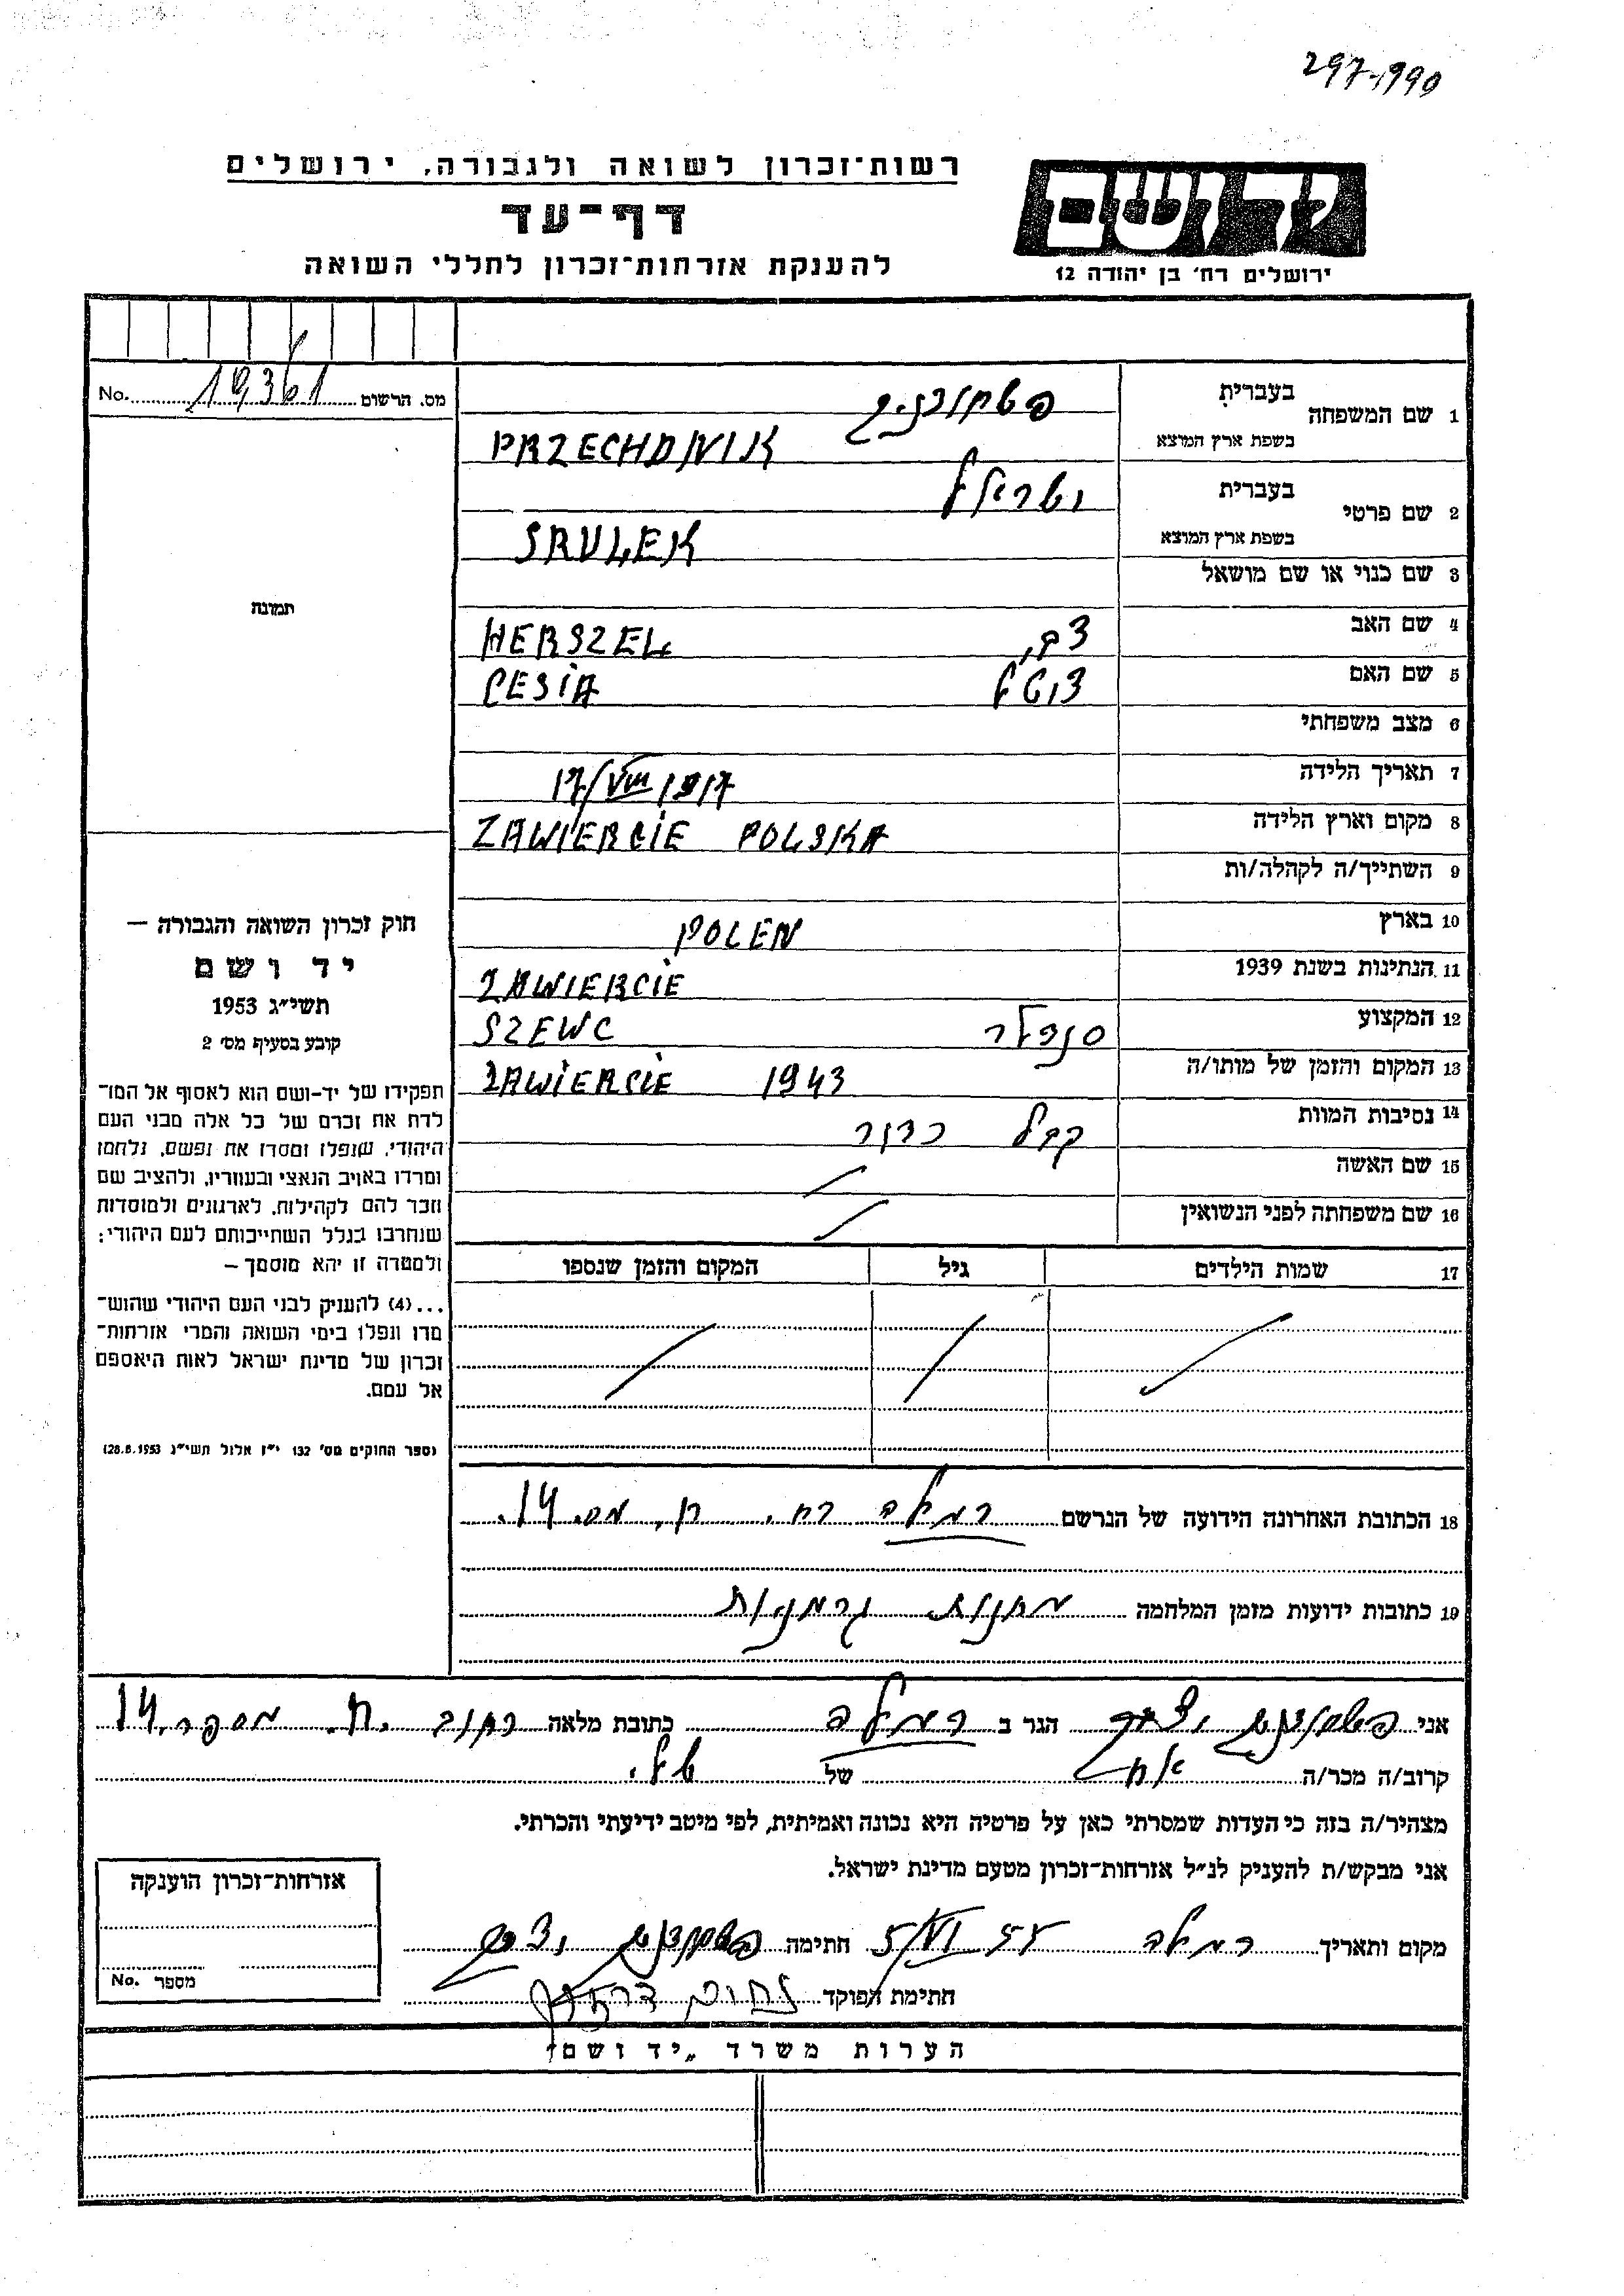 297-1990
רשות־זכרון לשואה ולגבורה, ירושלים
יד ושם
דף־עד
להענקת אזרחות־זכרון לחללי השואה
ירושלים רח׳ בן יהודה 12
מס. הרשום 19361 No.
1 שם המשפחה
בעברית
בשפת ארץ המוצא PRZECHODNIK
2 שם פרטי
בעברית
בשפת ארץ המוצא SRULEK
3 שם כנוי או שם מושאל
4 שם האב HERSZEL
5 שם האם CESIA
6 מצב משפחתי
7 תאריך הלידה 17/VIII 1917
8 מקום וארץ הלידה ZAWIERCIE POLSKA
9 השתייך/ה לקהלה/ות
10 בארץ POLEN
11 הנתינות בשנת 1939 ZAWIERCIE
12 המקצוע סנדלר SZEWC
13 המקום והזמן של מותו/ה ZAWIERCIE 1943
14 נסיבות המוות קבל כדור
15 שם האשה
16 שם משפחתה לפני הנשואין
17 שמות הילדים גיל המקום והזמן שנספו
תמונה
חוק זכרון השואה והגבורה —
יד ושם
תשי״ג 1953
קובע בסעיף מס׳ 2
תפקידו של יד-ושם הוא לאסוף אל המו־
לדת את זכרם של כל אלה מבני העם
היהודי, שנפלו ומסרו את נפשם, נלחמו
ומרדו באויב הנאצי ובעוזריו, ולהציב שם
וזכר להם לקהילות, לארגונים ולמוסדות
שנחרבו בגלל השתייכותם לעם היהודי;
ולמטרה זו יהא מוסמך —
...(4) להעניק לבני העם היהודי שהוש־
מדו ונפלו בימי השואה והמרי אזרחות־
זכרון של מדינת ישראל לאות היאספם
אל עמם.
(ספר החוקים מס׳ 132 י״ז אלול תשי״ג 28.8.1953)
18 הכתובת האחרונה הידועה של הנרשם רמלה רח. ח. מס. 14.
19 כתובות ידועות מזמן המלחמה מחנות גרמניות
אני הגר ב רמלה כתובת מלאה רחוב ח. מספר 14
קרוב/ה מכר/ה אח של שלי.
מצהיר/ה בזה כי העדות שמסרתי כאן על פרטיה היא נכונה ואמיתית, לפי מיטב ידיעתי והכרתי.
אני מבקש/ת להעניק לנ״ל אזרחות־זכרון מטעם מדינת ישראל.
מקום ותאריך רמלה 5/VI 55 חתימה
חתימת הפוקד נחום
אזרחות־זכרון הוענקה
מספר No.
הערות משרד „יד ושם״